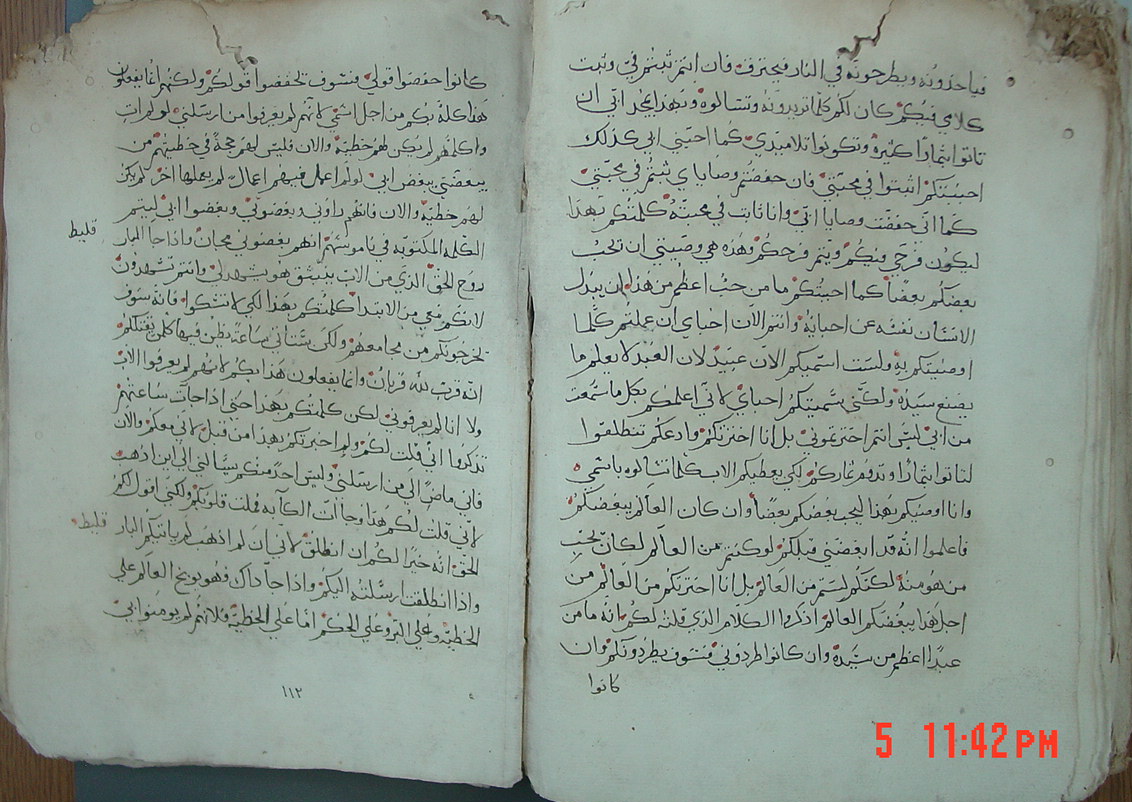 فياخذونه ويطرحونه في النار فيحترق فان انتم ثبتم في وثبت
كلامي فيكم كان لكم كلما تريدونه وتسالوه وبهذا يمجد ابي ان
تاتوا بثمارا كثيرة وتكونوا تلاميذي كما احبني ابي كذلك
احببتكم اثبتوا في محبتي فان حفضتم وصاياي ثبتم في محبتي
كما اني حفضت وصايا ابي وانا ثابت في محبته كلمتكم بهذا
ليكون فرحي فيكم ويتم فرحكم وهذه هي وصيتي ان تحب
بعضكم بعضا كما احببتكم ما من حب اعظم من هذا ان يبدل
الانسان نفسه عن احبايه وانتم الان احباي ان عملتم كلما
اوصيتكم به وليست اسميكم الان عبيد لان العبد لا يعلم ما
يصنع سيده ولكني سميتكم احباي لاني اعلمكم بكل ما سمعت
من ابي ليس انتم اخترتموني بل انا اخترتكم وادعكم تنطلقوا
لتاتوا بثمارا وتدوم ثماركم لكي يعطيكم الاب كلما تسالوه باسمي
وانا اوصيكم بهذا ليحب بعضكم بعضا وان كان العالم يبغضكم
فاعلموا انه قد ابغضني قبلكم لو كنتم من العالم لكان يحب
من هو منه لكنكم لستم من العالم بل انا اخترتكم من العالم من
اجل هذا يبغضكم العالم اذكروا الكلام الذي قلته لكم انه ما من
عبدا اعظم من سيده وان كانوا طردوني فسوف يطردونكم وان
كانوا
كانوا حفضوا قولي فسوف تحفضوا قولكم ولكنهم انما يفعلون
هذا كله بكم من اجل اسمي لانهم لم يعرفوا من ارسلني لو لم ات
واكلمهم لم يكن لهم خطية والان فليس لهم حجة في خطيتهم من
يبغضني يبغض ابي لو لم اعمل فيهم اعمال لم يعملها اخر لم يكن
لهم خطية والان فانهم راوني وبغضوني وبغضوا ابي ليتم
الكلمه المكتوبه في ناموسهم انهم بغضوني مجان واذا جا البار
قليط
روح الحق الذي من الاب ينبثق هو يشهد لي وانتم تشهدون
لانكم معي من الابتدا كلمتكم بهذا لكي لا تشكوا فانه سوف
يخرجونكم من مجامعهم ولكن ستاتي ساعة يظن فيها كلمن يقتلكم
انه قرب لله قربان وانما يفعلون هذا بكم لانهم لم يعرفوا الاب
ولا انا لم يعرفوني لكن كلمتكم بهذا حتى اذا جات ساعتهم
تذكروا اني قلت لكم ولم اخبرتكم بهذا من قبل لاني معكم والان
فاني ماض الى من ارسلني وليس احد منكم يسالني الى اين اذهب
لاني قلت لكم هذا وجات الكابه فملت قلوبكم ولكني اقول لكم
الحق انه خيرا لكم ان انطلق لاني ان لم اذهب لم ياتيكم البار
قليط
واذا انطلقت ارسلته اليكم واذا جا ذاك فهو يوبخ العالم على
الخطية وعلى البر وعلى الحكم اما على الخطية فلانهم لم يومنوا بي
١١٢
5 11:42PM